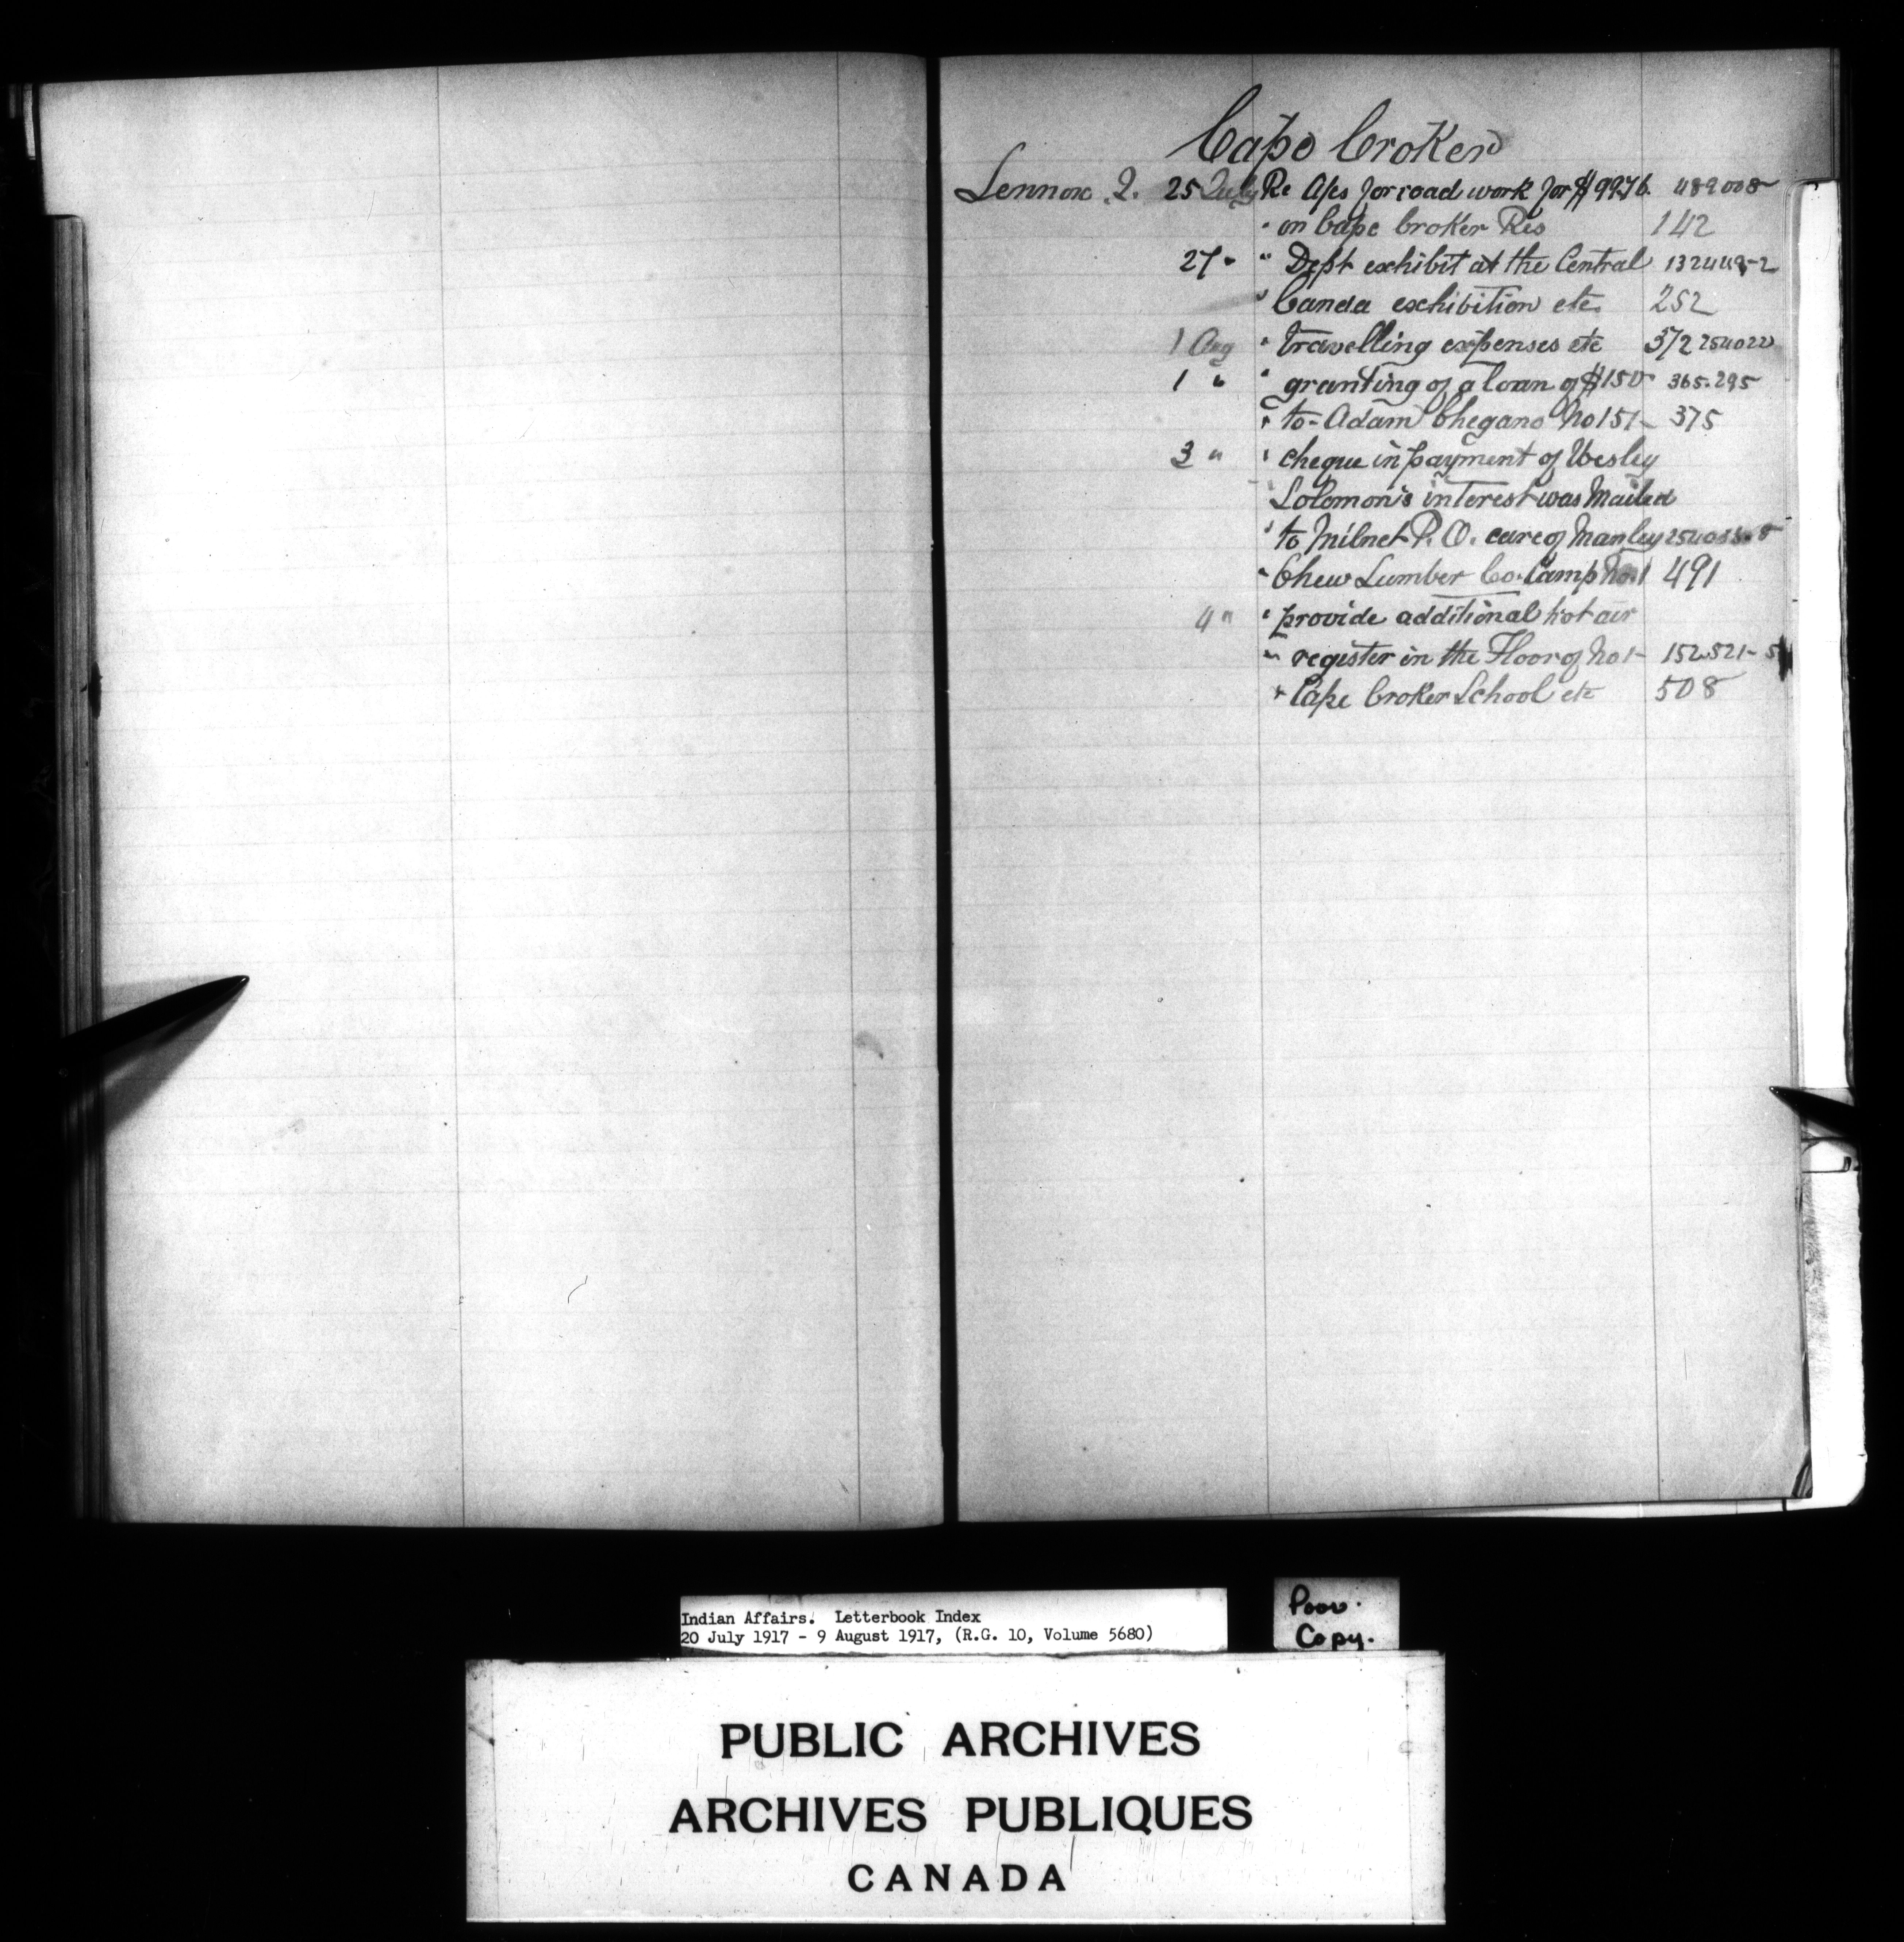 Cape Croker
Lennox J. 25 July Re A/cs for road work for $99.76. 489008
" on Cape Croker Res 142
27 " " Dept exhibit at the Central 132449-2
" Canda exhibition etc. 252
1 Aug " travelling expenses etc 372 254022
1 " " granting of a loan of $150 365.295
" to - Adam Chegano No 151- 375
3 " " cheque in payment of Wesley
" Solomon's interest was Mailed
" to Milnet P.O. care of Manley
" Chew Lumber Co. Camp No. 1 491
4 " " provide additional hot air
" register in the Floor of No 1- 152.521-5
" Cape Croker School etc 508
Indian Affairs. Letterbook Index
20 July 1917 - 9 August 1917, (R.G. 10, Volume 5680)
Poor.
Copy.
PUBLIC ARCHIVES
ARCHIVES PUBLIQUES
CANADA